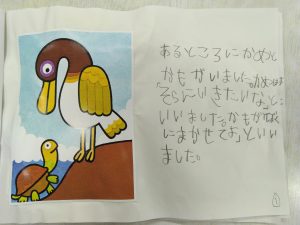 あるところにかめと
かもがいました。かめは
「そらにいきたいな」と
いいました。かもが
にまかせてよ」といい
ました。
1